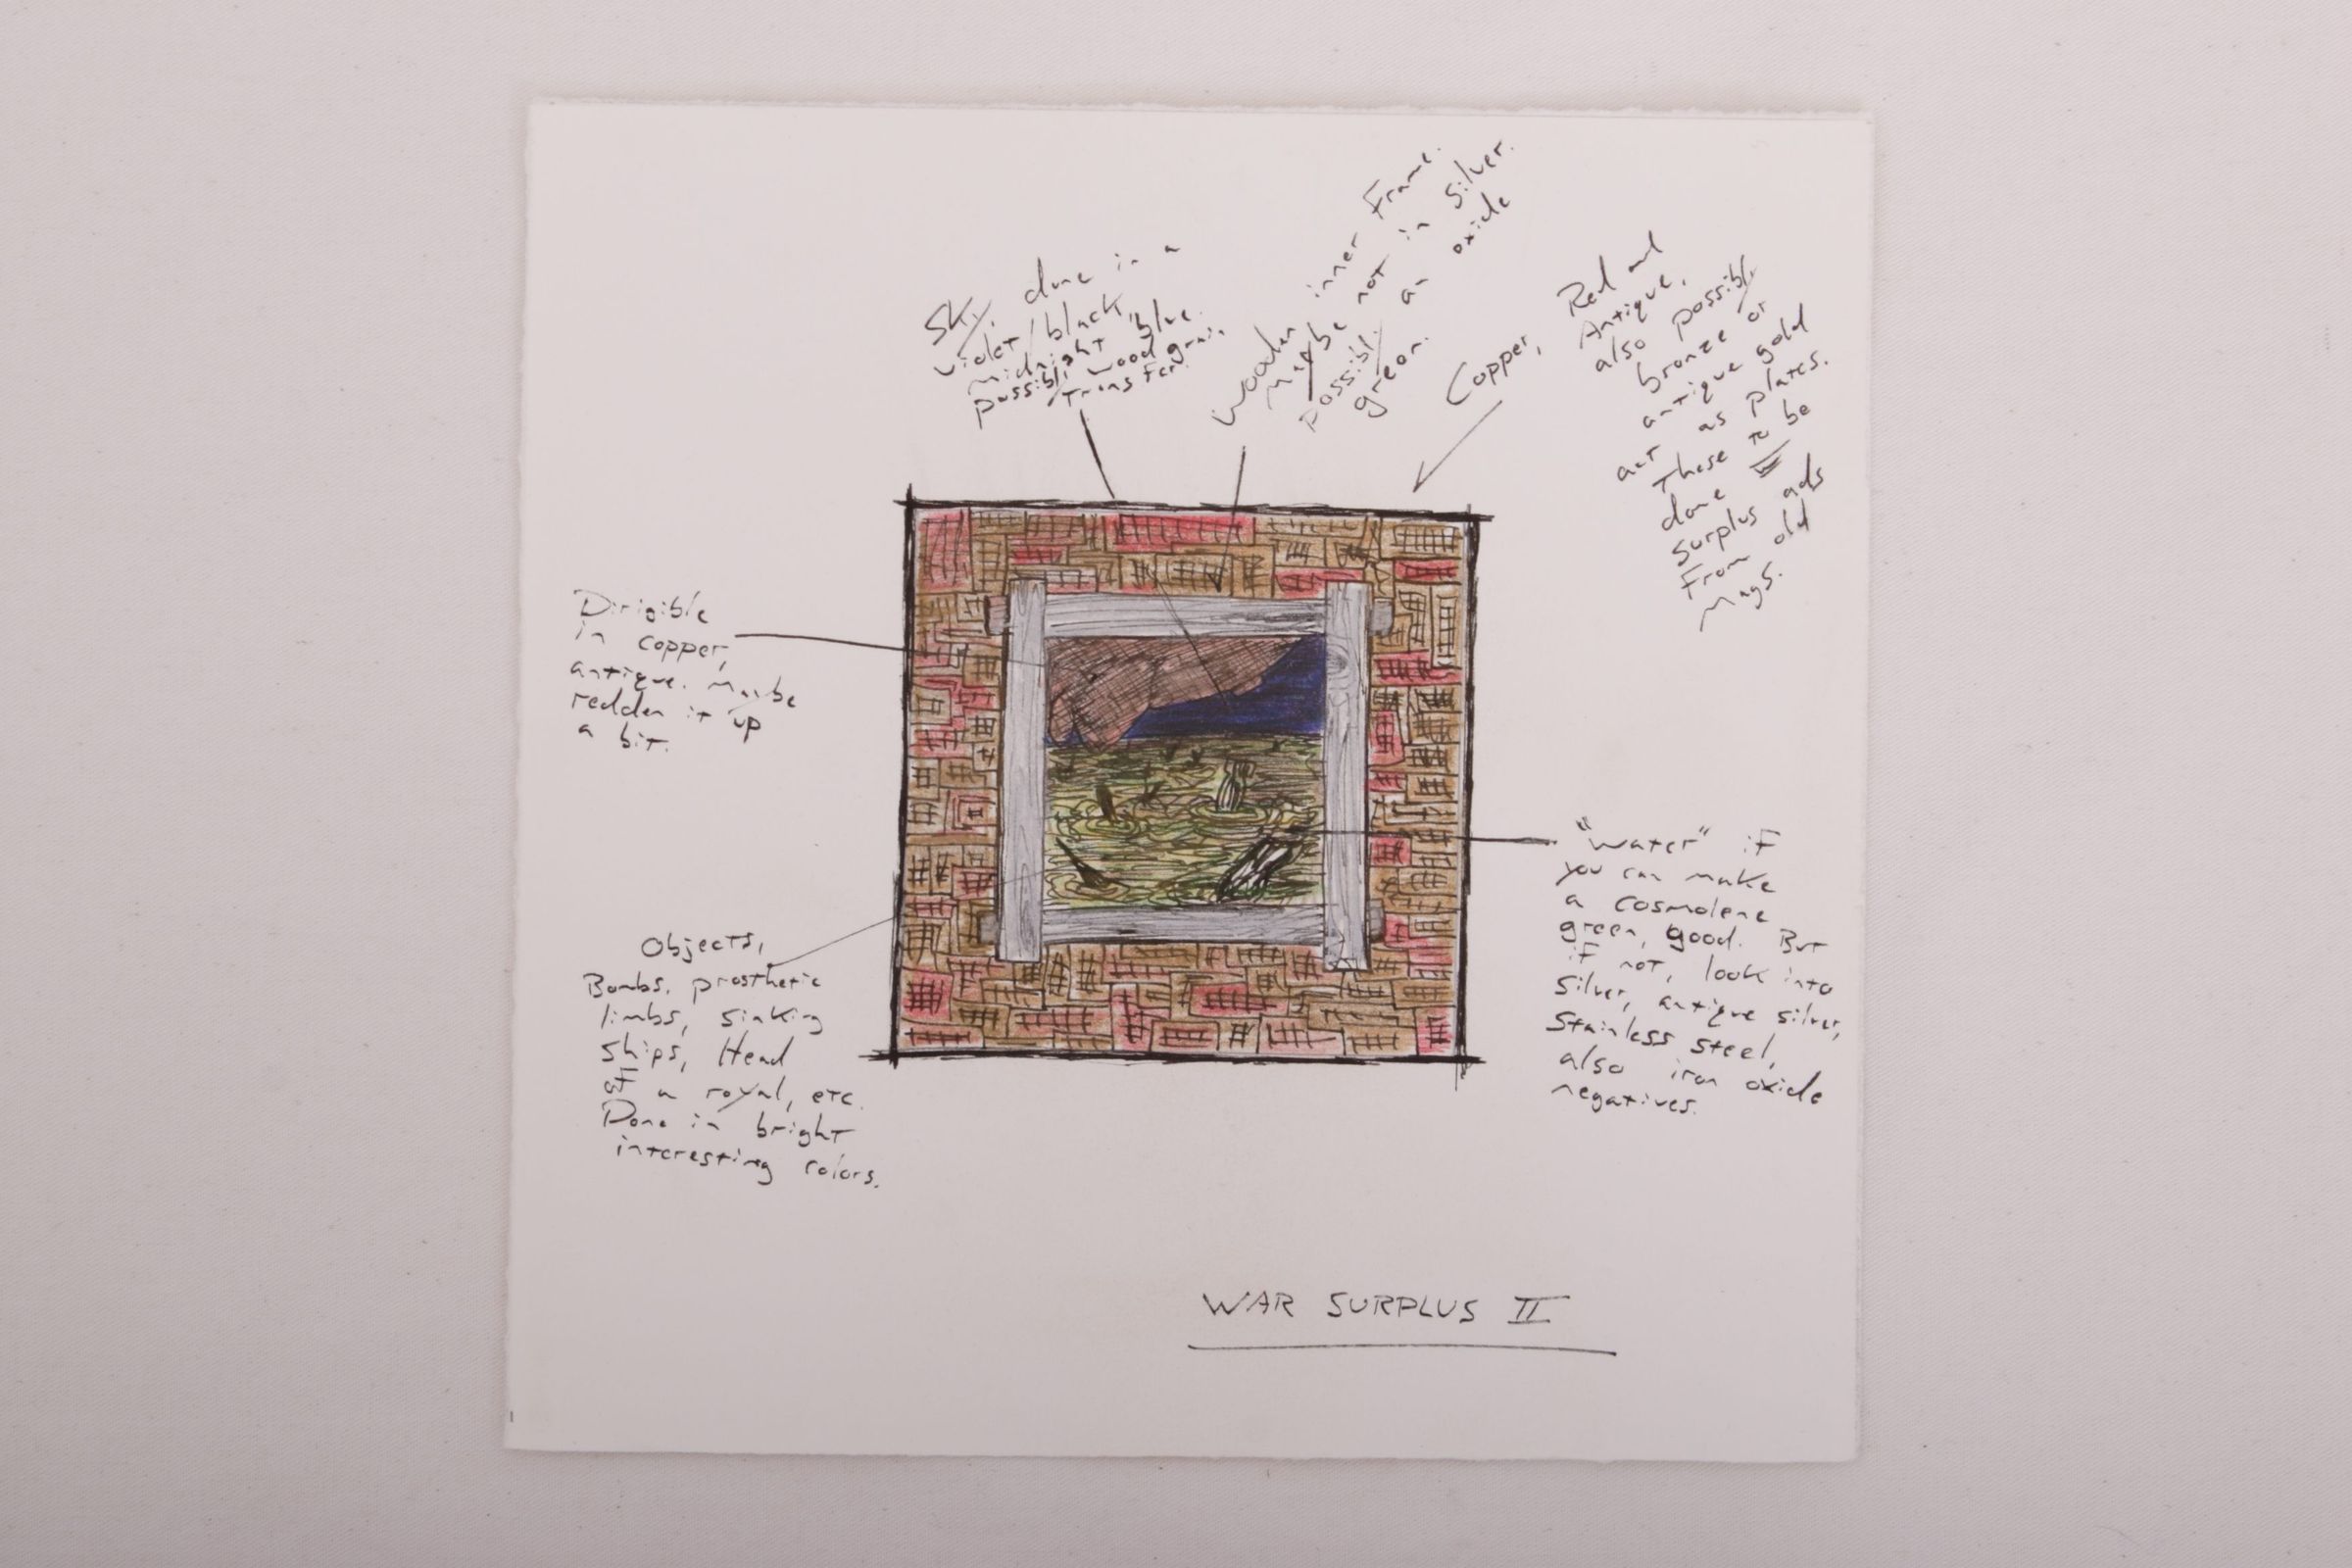 Sky, done in a
violet/black,
midnight blue.
possibly wood grain
transfer.
Wooden inner Frame.
Maybe not in silver.
possibly an oxide
green.
Copper, Red and
Antique,
also possibly
bronze or
antique gold
act as plates.
These to be
done
surplus ads
From old
mags.
Dirigible
in copper,
antique. Maybe
redden it up
a bit.
"Water" if
you can make
a cosmolene
green, good. But
if not, look into
silver, antique silver,
stainless steel,
also iron oxide
negatives.
Objects,
Bombs, prosthetic
limbs, sinking
ships, Head
of a royal, etc.
Done in bright
interesting colors.
WAR SURPLUS II